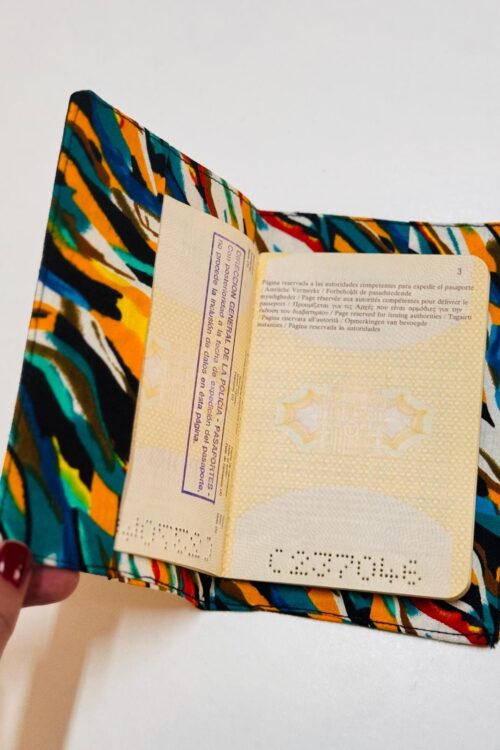 DIRECCION GENERAL DE LA POLICIA - PASAPORTES -
Con posterioridad a la fecha de expedición del pasaporte,
no procede la inclusión de datos en ésta página.
3
Página reservada a las autoridades competentes para expedir el pasaporte
/ Amtliche Vermerke / Forbeholdt de pasudstedende
myndigheder / Page réservée aux autorités compétentes pour délivrer le
passeport / Προορίζεται για τις Αρχές που είναι αρμόδιες για την
έκδοση του διαβατηρίου / Page reserved for issuing authorities /
Pagina riservata all'autorità / Opmerkingen van bevoegde
instanties / Página reservada às autoridades
C237046